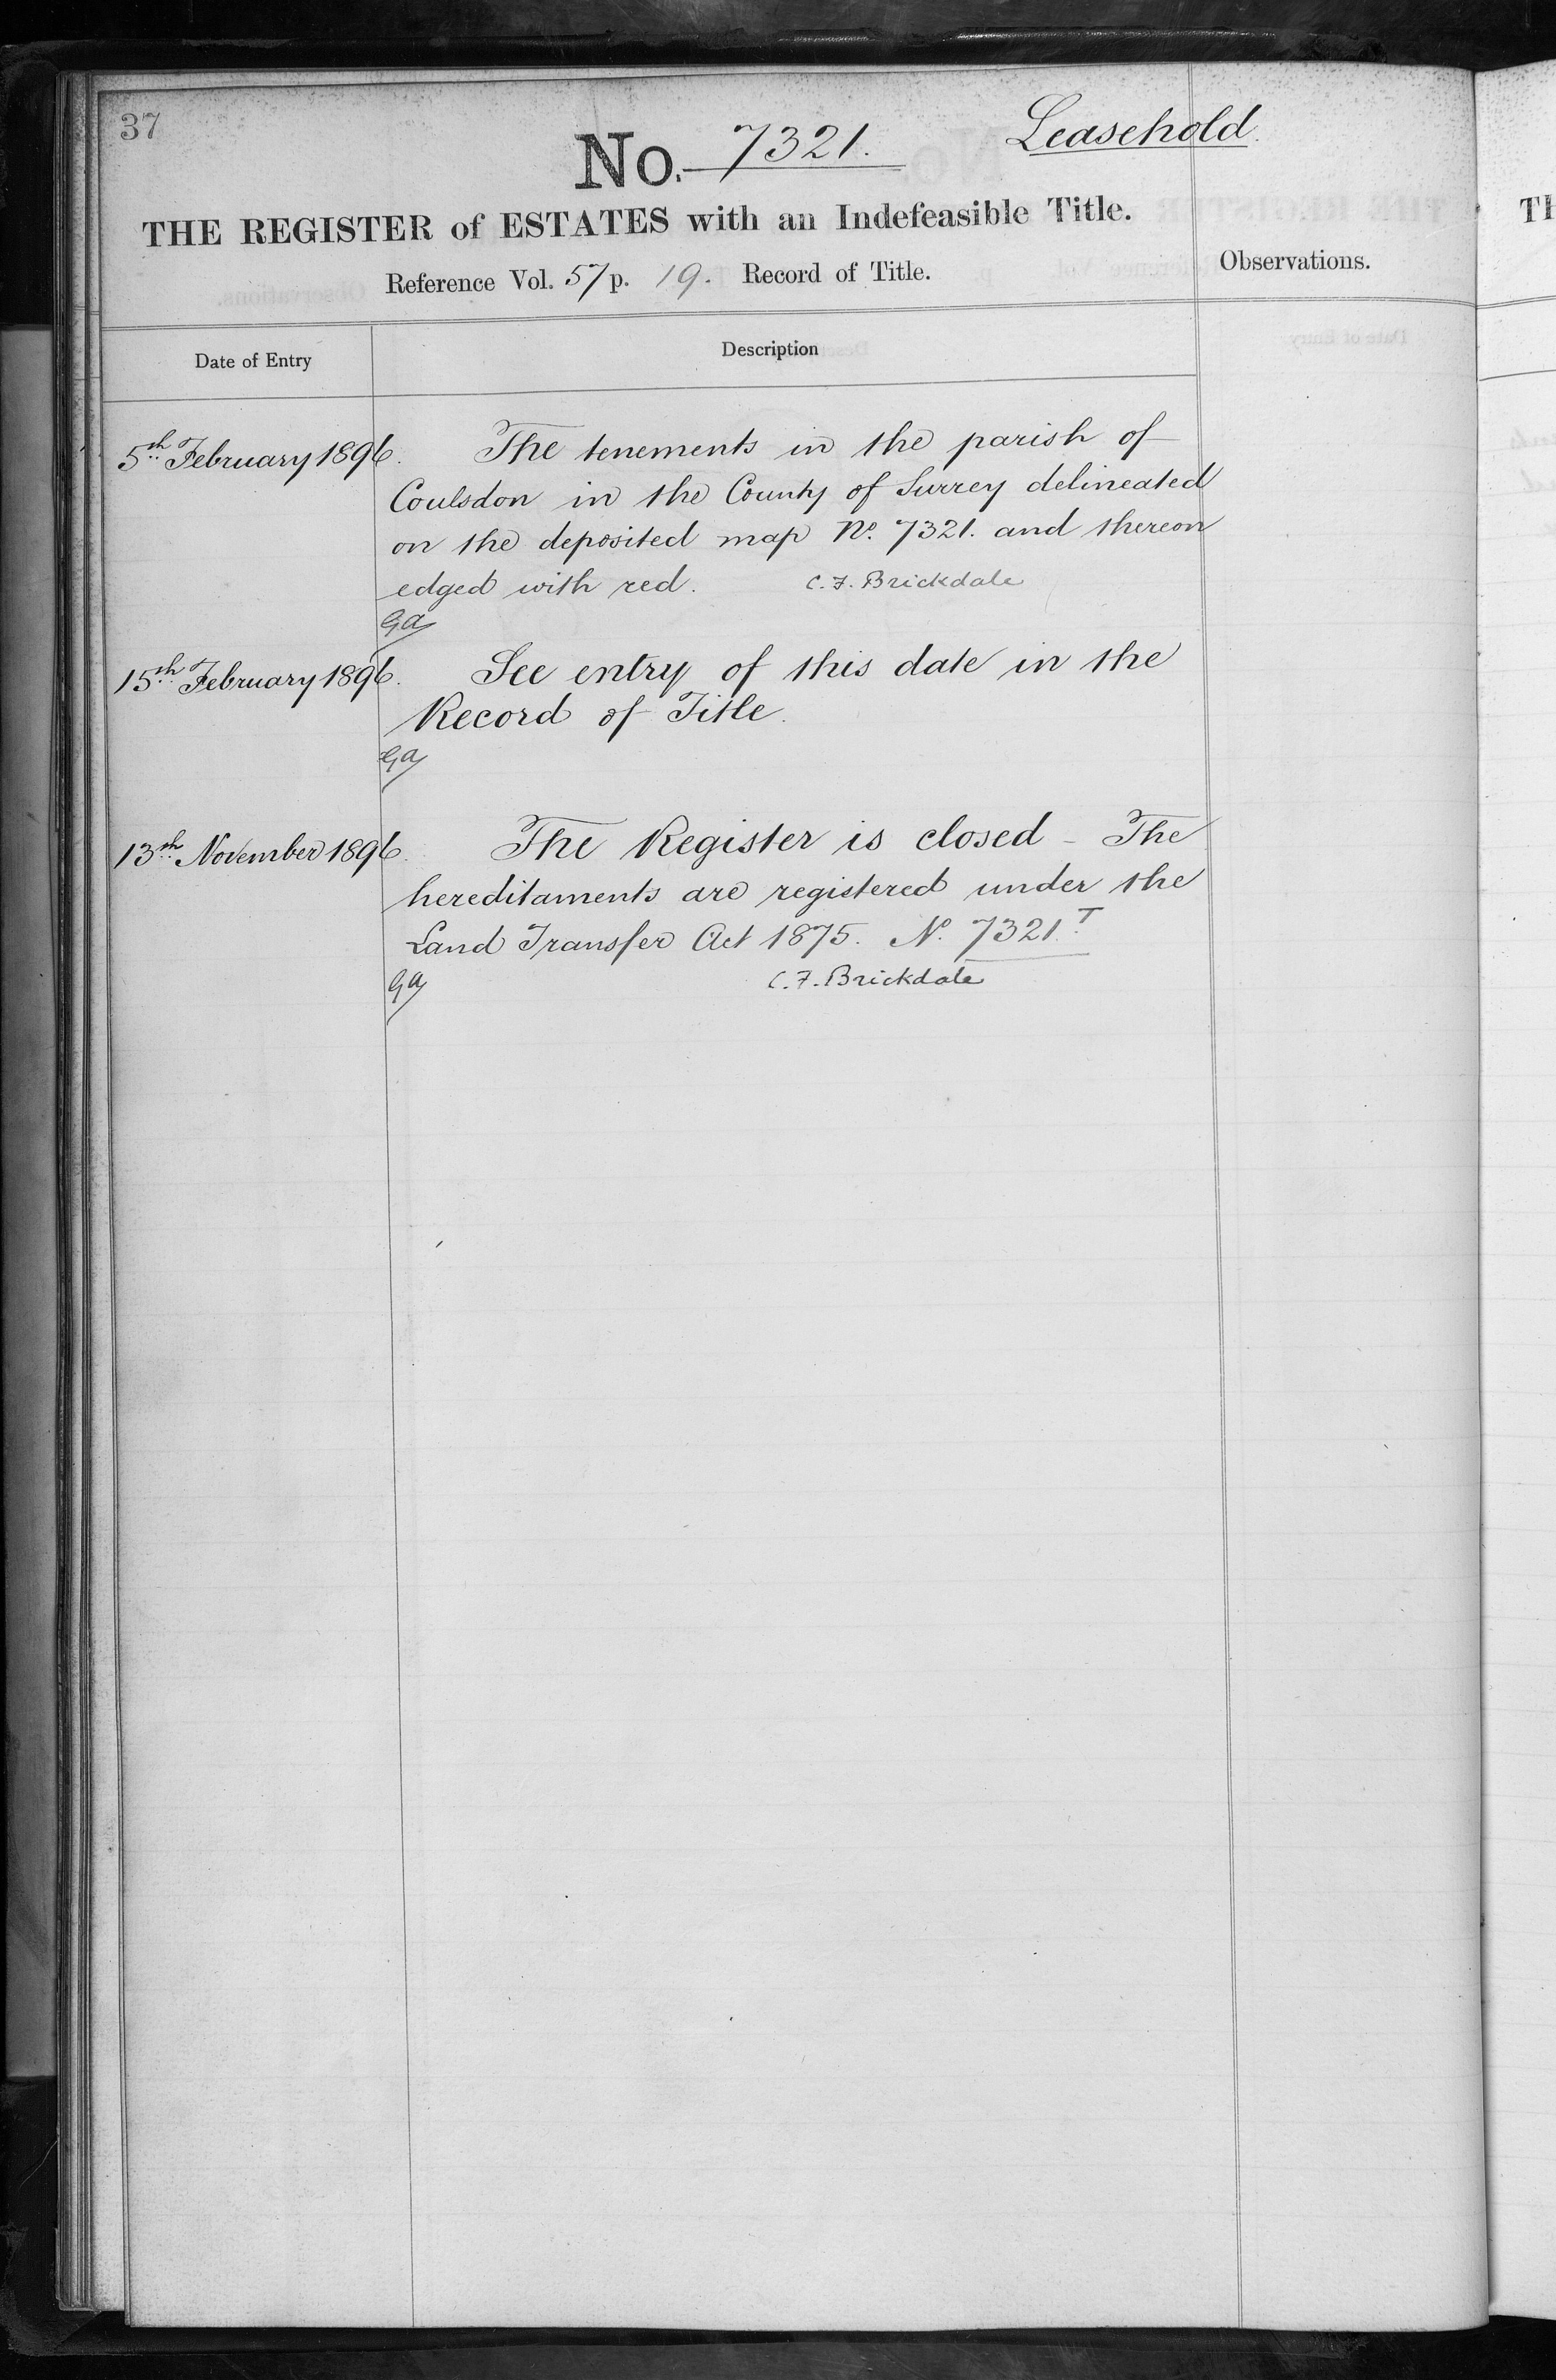 37
No. 7321. Leasehold.
THE REGISTER of ESTATES with an Indefeasible Title.
Reference Vol. 57 p. 19. Record of Title.
Observations.
Date of Entry
Description
5th February 1896. The tenements in the parish of
Coulsdon in the County of Surrey delineated
on the deposited map No. 7321. and thereon
edged with red. C. F. Brickdale
GA
15th February 1896. See entry of this date in the
Record of Title.
GA
13th November 1896. The Register is closed - The
hereditaments are registered under the
Land Transfer Act 1875. No. 7321.T
GA C. F. Brickdale